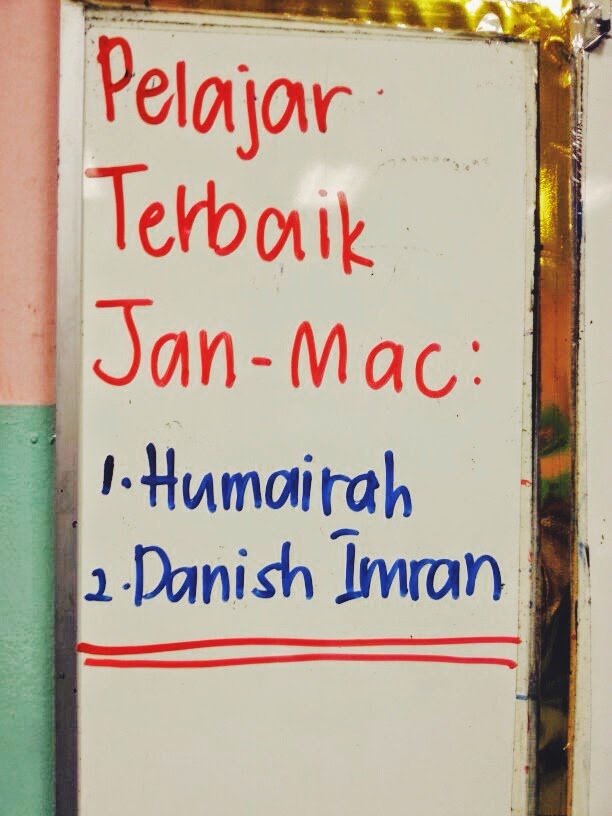 Pelajar
Terbaik
Jan-Mac:
1. Humairah
2. Danish Imran